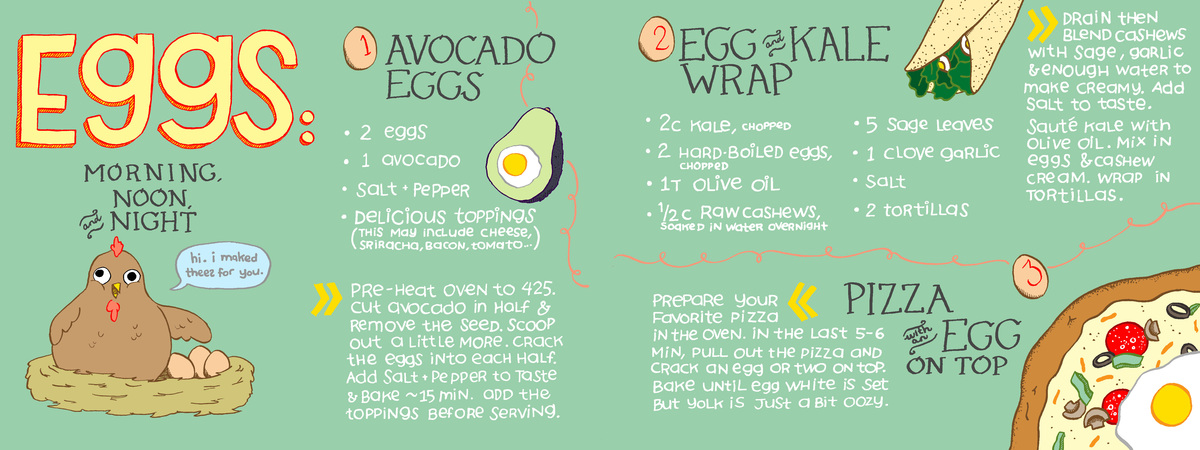 Eggs:
MORNING,
NOON,
and NIGHT
hi. i maked
theez for you.
1 AVOCADO
EGGS
• 2 eggs
• 1 avocado
• Salt + Pepper
• Delicious toppings
(This may include cheese,
Sriracha, bacon, tomato...)
Pre-Heat oven to 425.
Cut avocado in Half &
Remove the Seed. Scoop
out a little more. Crack
the eggs into each half.
Add Salt + Pepper to Taste
& Bake ~15 min. add the
toppings before serving.
2 EGG and KALE
WRAP
• 2c Kale, chopped
• 2 Hard-Boiled eggs,
chopped
• 1T Olive Oil
• 1/2 c Raw cashews,
Soaked in water overnight
• 5 Sage Leaves
• 1 clove garlic
• Salt
• 2 tortillas
Drain then
Blend cashews
with Sage, garlic
& enough water to
make creamy. Add
Salt to taste.
Sauté Kale with
olive oil. Mix in
eggs & cashew
cream. Wrap in
tortillas.
3
PIZZA
with an EGG
ON TOP
Prepare your
Favorite Pizza
in the oven. In the last 5-6
min, pull out the pizza and
crack an egg or two on top.
Bake until egg white is set
But yolk is just a bit oozy.